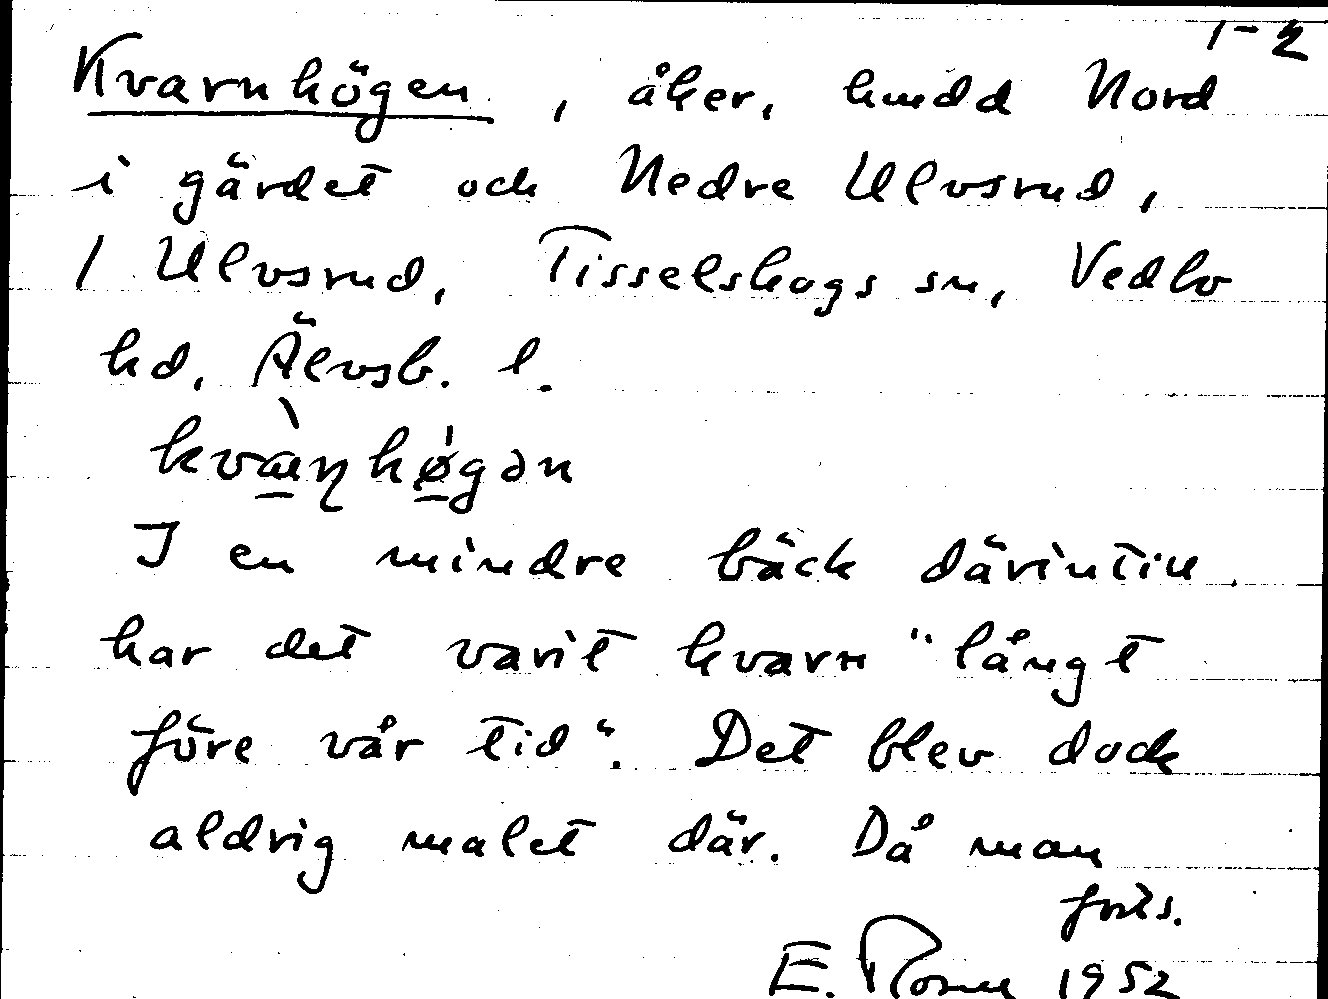 1-2
Kvarnhögen, åker, kmdd Nord
i gärdet och Nedre Ulvsrud,
1 Ulvsrud, Tisselskogs sn, Vedbo
hd, Älvsb. l.
kvàɳhø̀gən
I en mindre bäck därintill
har det varit kvarn "långt
före vår tid". Det blev dock
aldrig malet där. Då man
forts.
E. 1952